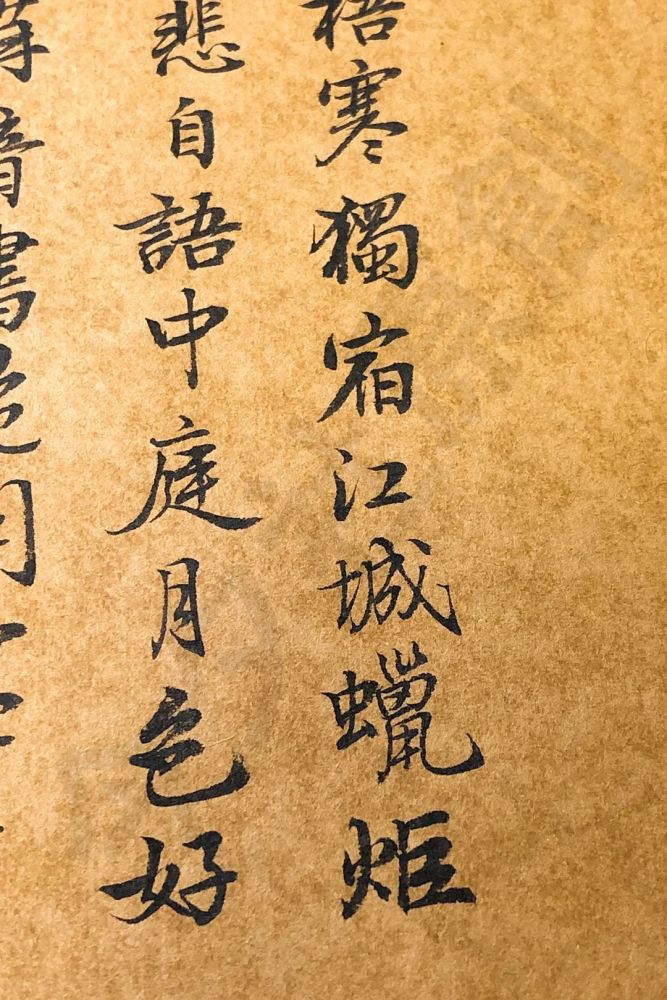 梧寒獨宿江城蠟炬
悲自語中庭月色好
音書